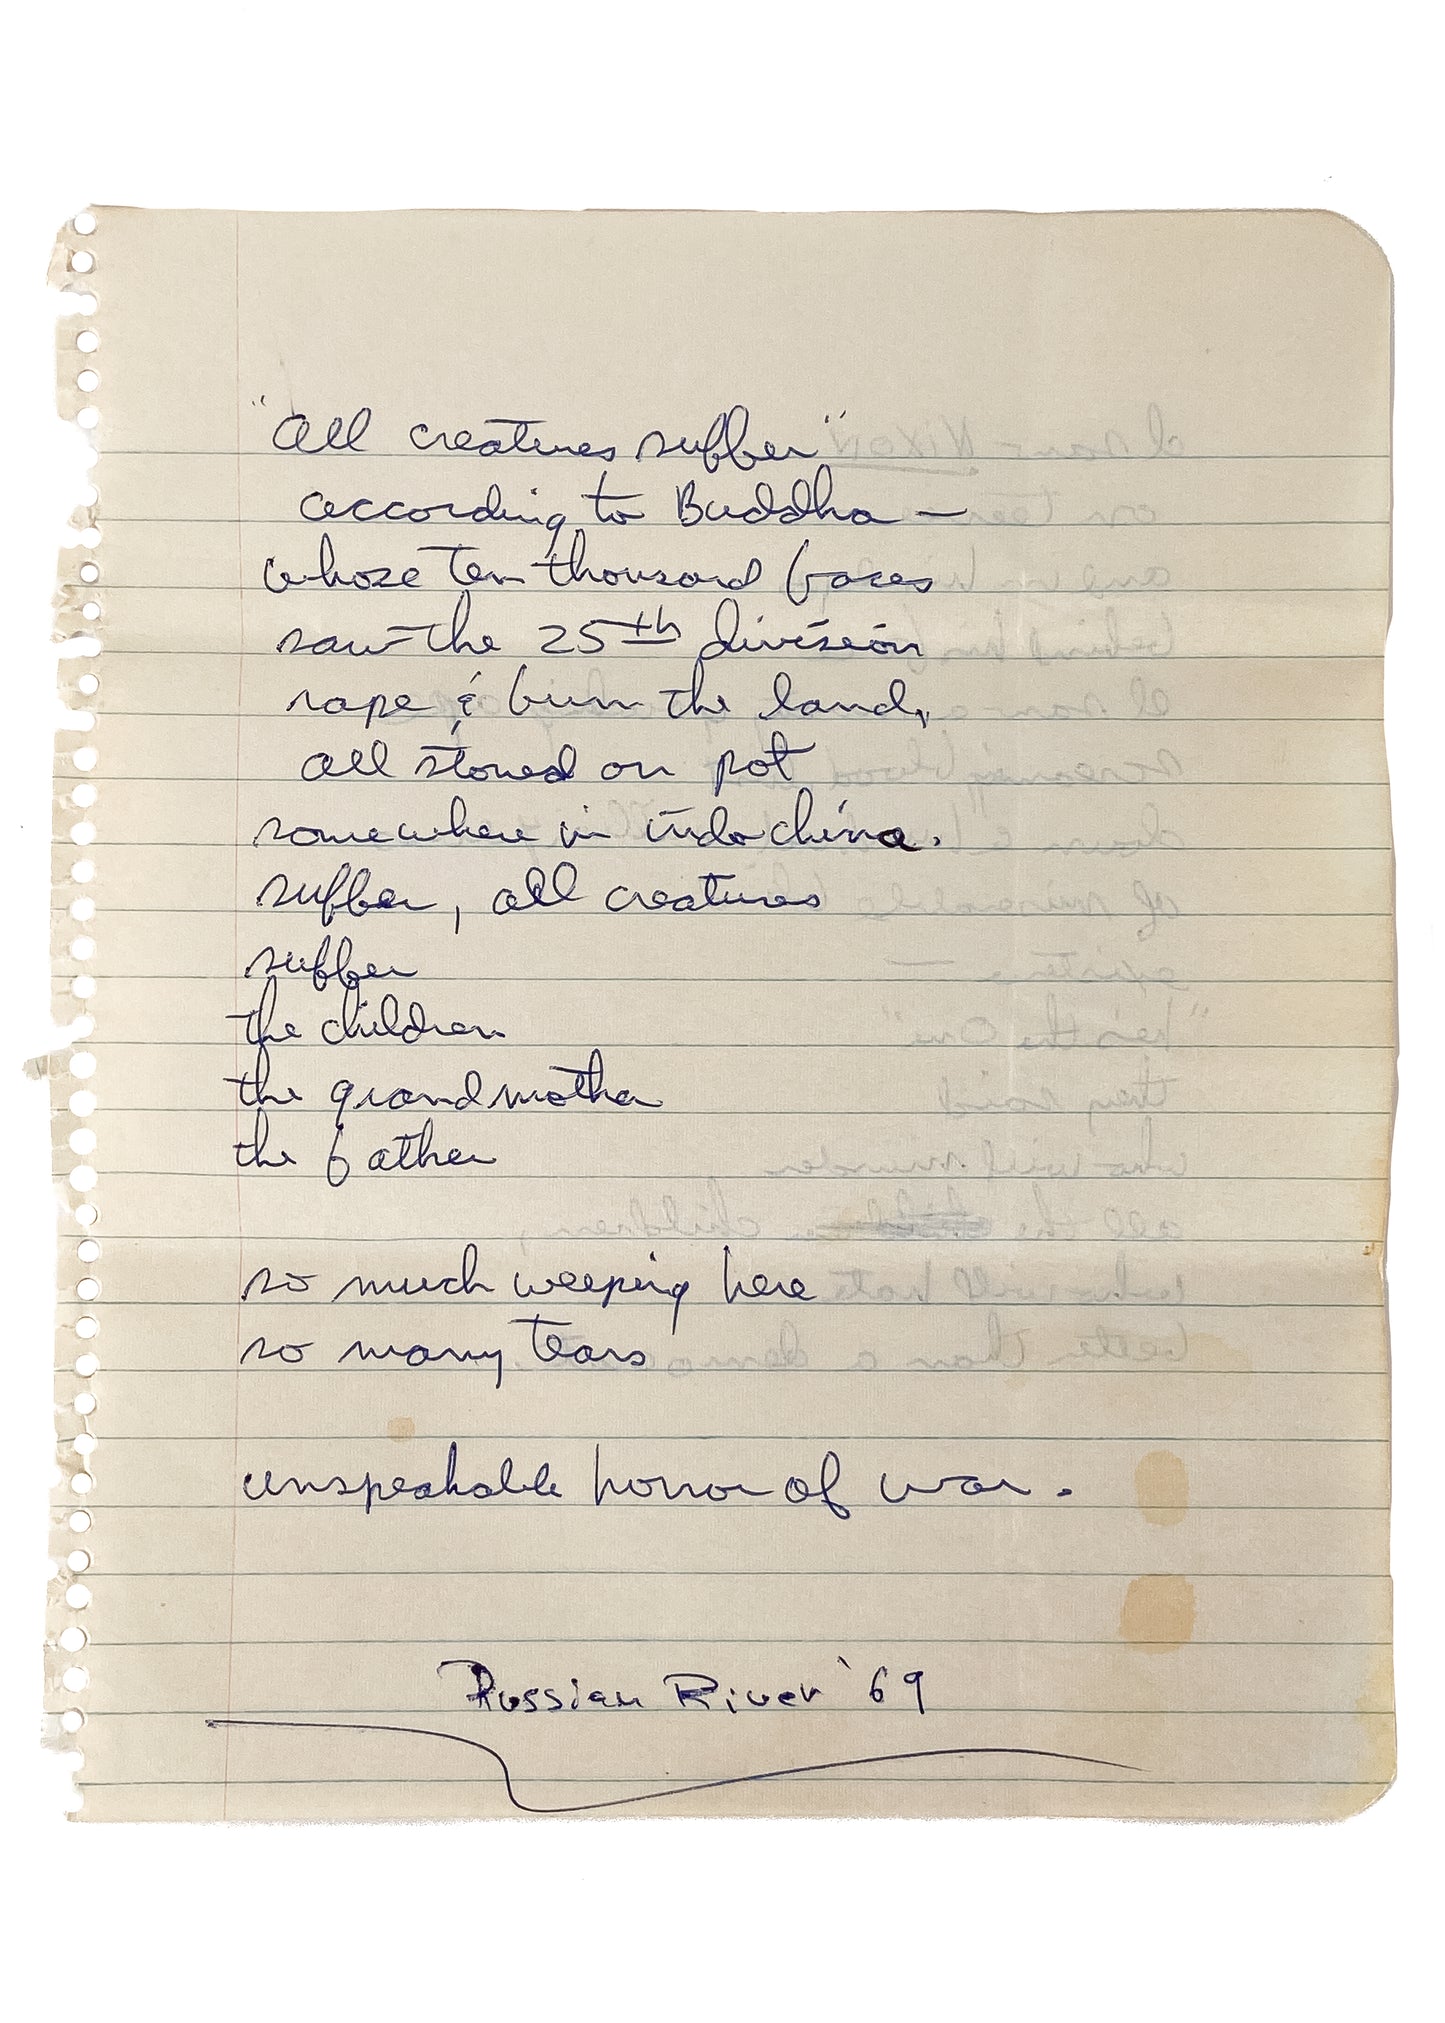 "All creatures suffer"
according to Buddha —
whose ten thousand faces
saw the 25th division
rape & burn the land,
all stoned on pot
somewhere in indochina.
suffer, all creatures
suffer
the children
the grandmother
the father
so much weeping here
so many tears
unspeakable horror of war.
Russian River '69